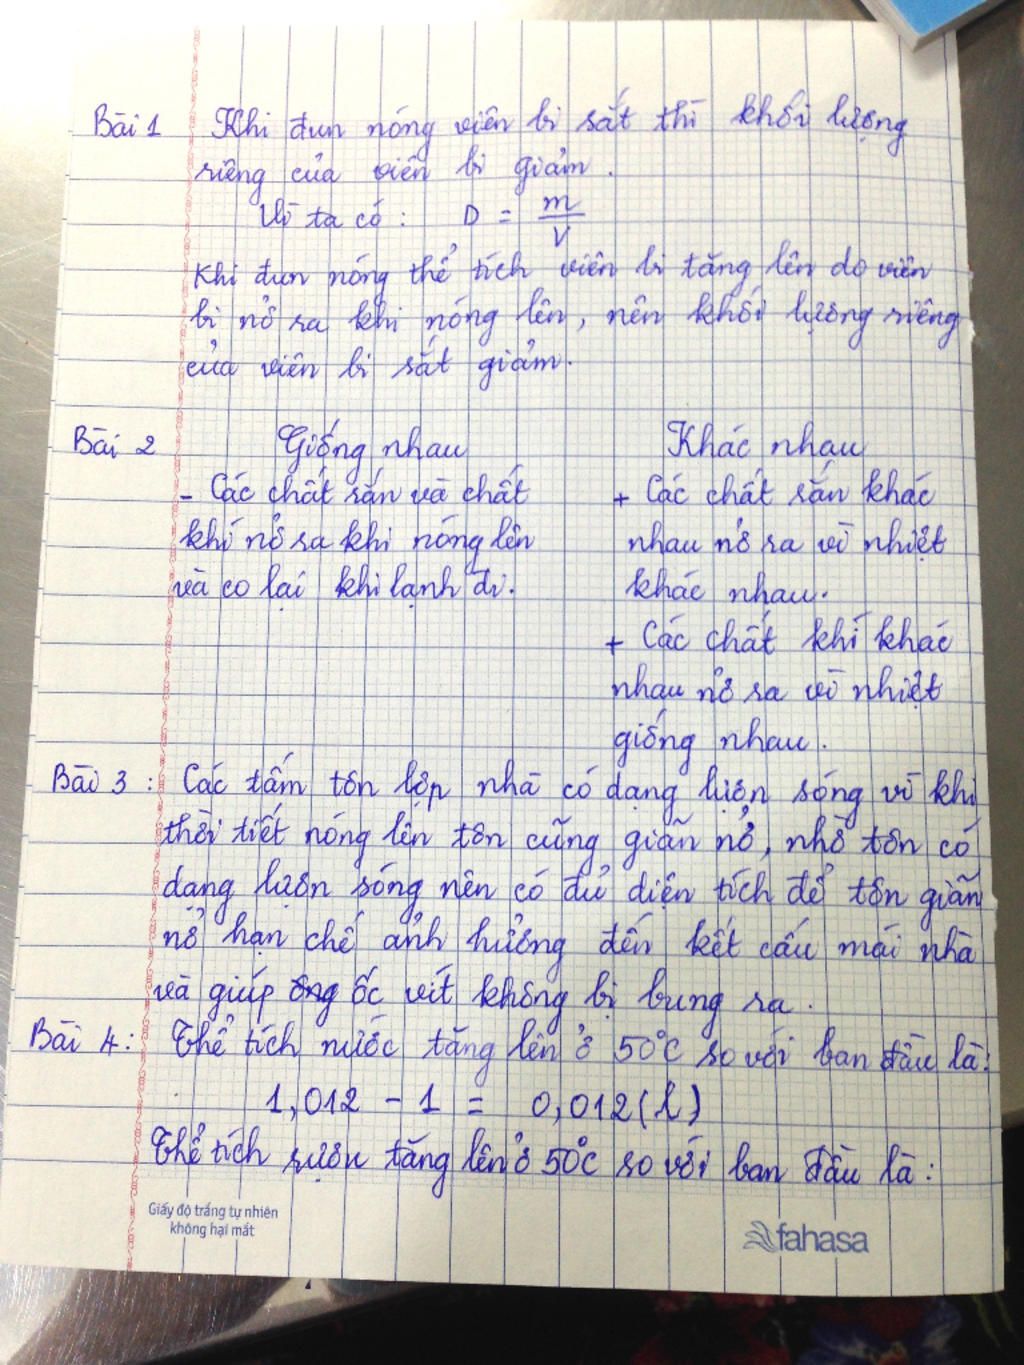 Bài 1 Khi đun nóng viên bi sắt thì khối lượng
riêng của viên bi giảm.
Vì ta có : D = m/V
Khi đun nóng thể tích viên bi tăng lên do viên
bi nở ra khi nóng lên, nên khối lượng riêng
của viên bi sắt giảm.
Bài 2 Giống nhau Khác nhau
- Các chất rắn và chất
khí nở ra khi nóng lên
và co lại khi lạnh đi.
+ Các chất rắn khác
nhau nở ra vì nhiệt
khác nhau.
+ Các chất khí khác
nhau nở ra vì nhiệt
giống nhau.
Bài 3 : Các tấm tôn lợp nhà có dạng lượn sóng vì khi
thời tiết nóng lên tôn cũng giãn nở, nhờ tôn có
dạng lượn sóng nên có đủ diện tích để tôn giãn
nở hạn chế ảnh hưởng đến kết cấu mái nhà
và giúp ông ốc vít không bị bung ra.
Bài 4: Thể tích nước tăng lên ở 50°C so với ban đầu là:
1,012 - 1 = 0,012 (l)
Thể tích rượu tăng lên ở 50°C so với ban đầu là:
Giấy độ trắng tự nhiên
không hại mắt
fahasa